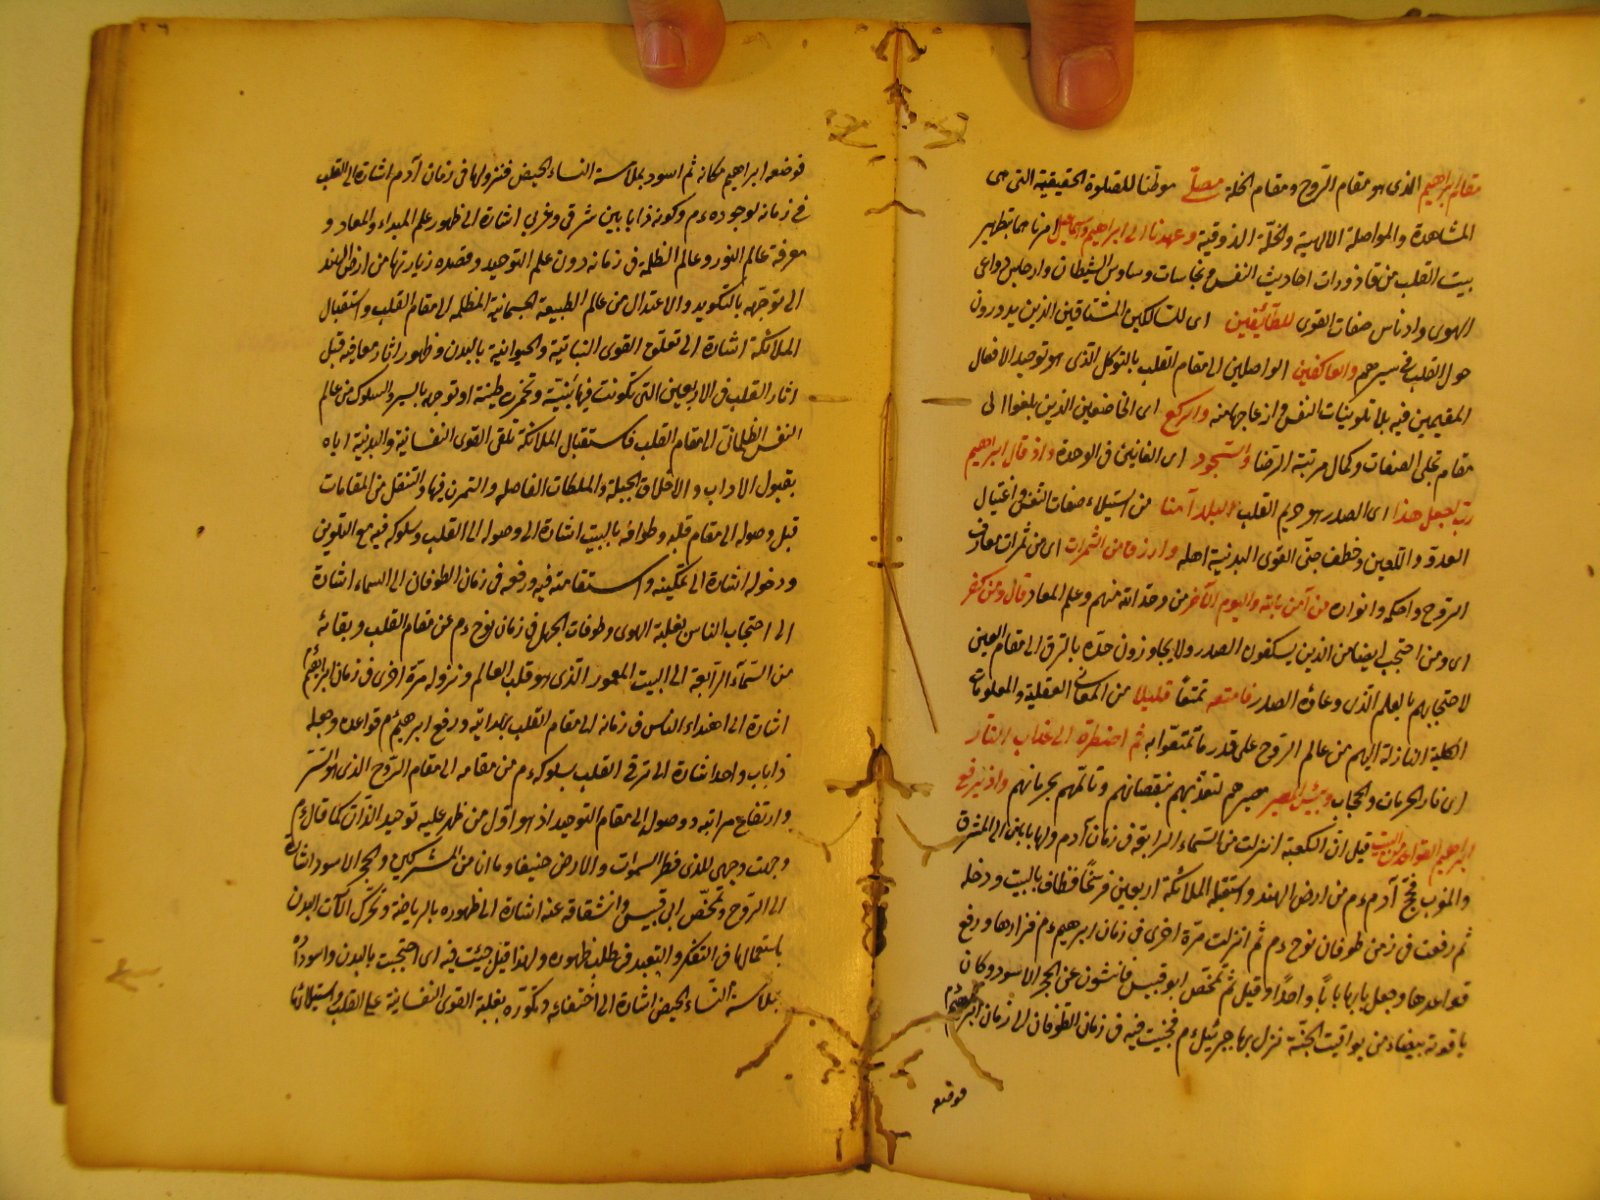 مقام ابراهيم الذى هو مقام الروح ومقام الخلة مصلّى موطنا للصلوة الحقيقية التى هى
المشاهدة والمواصلة الالهية والخلّة الذوقية وعهدنا الى ابراهيم واسمعيل امرناهما بتطهير
بيت القلب من قاذورات احاديث النفس ونجاسات وساوس الشيطان وارجاس دواعى
الهوى وادناس صفات القوى للطائفين اى للسالكين المشتاقين الذين يدورون
حول القلب فى سيرهم والعاكفين الواصلين الى مقام القلب بالتوكل الذى هو توحيد الافعال
المقيمين فيه بلا تلوينات النفس وازعاجها منه والركع اى الخاضعين الذين بلغوا الى
مقام تجلى الصفات وكمال مرتبة الرضا والسجود اى الفانين فى الوحدة واذ قال ابراهيم
رب اجعل هذا اى الصدر هو حريم القلب البلد آمنا من استيلاء صفات النفس واغتيال
العدوّ واللعين وخطف جنّ القوى البدنية اهله وارزقه من الثمرات اى من ثمرات معارف
الروح واحكم وانواره من آمن بالله واليوم الآخر من وحد الله منهم وعلم المعاد قال ومن كفر
اى ومن احتجب ايضا من الذين يسكنون الصدر ولا يجاوزون حدّه بالترقى الى مقام العين
لاحتجابهم بالعلم الذى وعاؤه الصدر فامتعه تمتعا قليلا من المعانى العقلية والمعلومات
الكلية النازلة اليهم من عالم الروح على قدر ما تمتعوا به ثم اضطرّه الى عذاب النار
اى نار الحرمان والحجاب وبئس المصير مصيرهم لتعذبهم بنقصانهم وتألمهم بحرمانهم واذ يرفع
ابراهيم القواعد من البيت قيل ان الكعبة انزلت من السماء الرابعة فى زمان آدم ولها بابان الى المشرق
والمغرب فحج آدم ءم من ارض الهند واستقبله الملائكة اربعين فرسخا فطاف بالبيت ودخله
ثم رفعت فى زمن طوفان نوح ءم ثم انزلت مرّة اخرى فى زمان ابرهيم ءم فزارها ورفع
قواعدها وجعل بابها بابا واحدا وقيل ثم تمخّض ابو قبيس فانشق عن الحجر الاسود وكان
ياقوتة بيضاء من يواقيت الجنّة نزل بها جبرئيل ءم فخبئت فيه فى زمان الطوفان الى زمان ابراهيم ءم
فوضعه
فوضعه ابراهيم مكانه ثم اسود بملامسة النساء الحيض فنزولها فى زمان آدم اشارة الى القلب
فى زمانه لوجوده ءم وكونه ذا بابين شرقى وغربى اشارة الى ظهور علم المبداء والمعاد و
معرفة عالم النور وعالم الظلمة فى زمانه دون علم التوحيد وقصده زيارتها من ارض الهند
الى توجّهه بالتكوين والاعتدال من عالم الطبيعة الجسمانية المظلمه الى مقام القلب واستقبال
الملائكة اشارة الى تعلق القوى النباتية والحيوانية بالبدن وظهور اثارها فيه قبل
اثار القلب فى الاربعين التى تكونت فيها بنيته وتخمّره طينة او توجهه بالسير والسلوك من عالم
النفس الظلمانى الى مقام القلب فاستقبال الملائكة تلقى القوى النفسانية والبدنية اياه
بقبول الاداب والاخلاق الجميلة والملكات الفاضله والتمرن فيها والتنقل من المقامات
قبل وصوله الى مقام قلبه وطوافه بالبيت اشارة الى وصوله الى القلب وسلوكه فيه مع التلوين
ودخوله اشارة الى تمكينه واستقامته فيه ورفعه فى زمان الطوفان الى السماء اشارة
الى احتجاب الناس بغلبة الهوى وطوفان الجهل فى زمان نوح ءم عن مقام القلب وبقائه
من السماء الرابعة الى البيت المعمور الذى هو قلب العالم ونزوله مرّة اخرى فى زمان ابراهيم ءم
اشارة الى اهتداء الناس فى زمانه الى مقام القلب بهدايته ورفع ابرهيم ءم قواعده وجعله
ذا باب واحد اشارة الى ترقى القلب بسلوكه ءم من مقامه الى مقام الروح الذى هو السّر
وارتفاع مراتبه ووصوله الى مقام التوحيد اذ هو اول من ظهر عليه توحيد الذات كما قال ءم
وجهت وجهى للذى فطر السموات والارض حنيفا وما انا من المشركين والحجر الاسود اشارة
الى الروح وتمخّض ابى قبيس وانشقاقه عنه اشارة الى ظهوره بالرياضة وتحرّك آلات البدن
باستعمالها فى التفكر والتعبد فى طلب ظهوره ولهذا قيل خبئت فيه اى احتجبت بالبدن واسوداده
بملامسة النساء الحيض اشارة الى اختفائه وتكدّره بغلبة القوى النفسانية على القلب واستيلائها